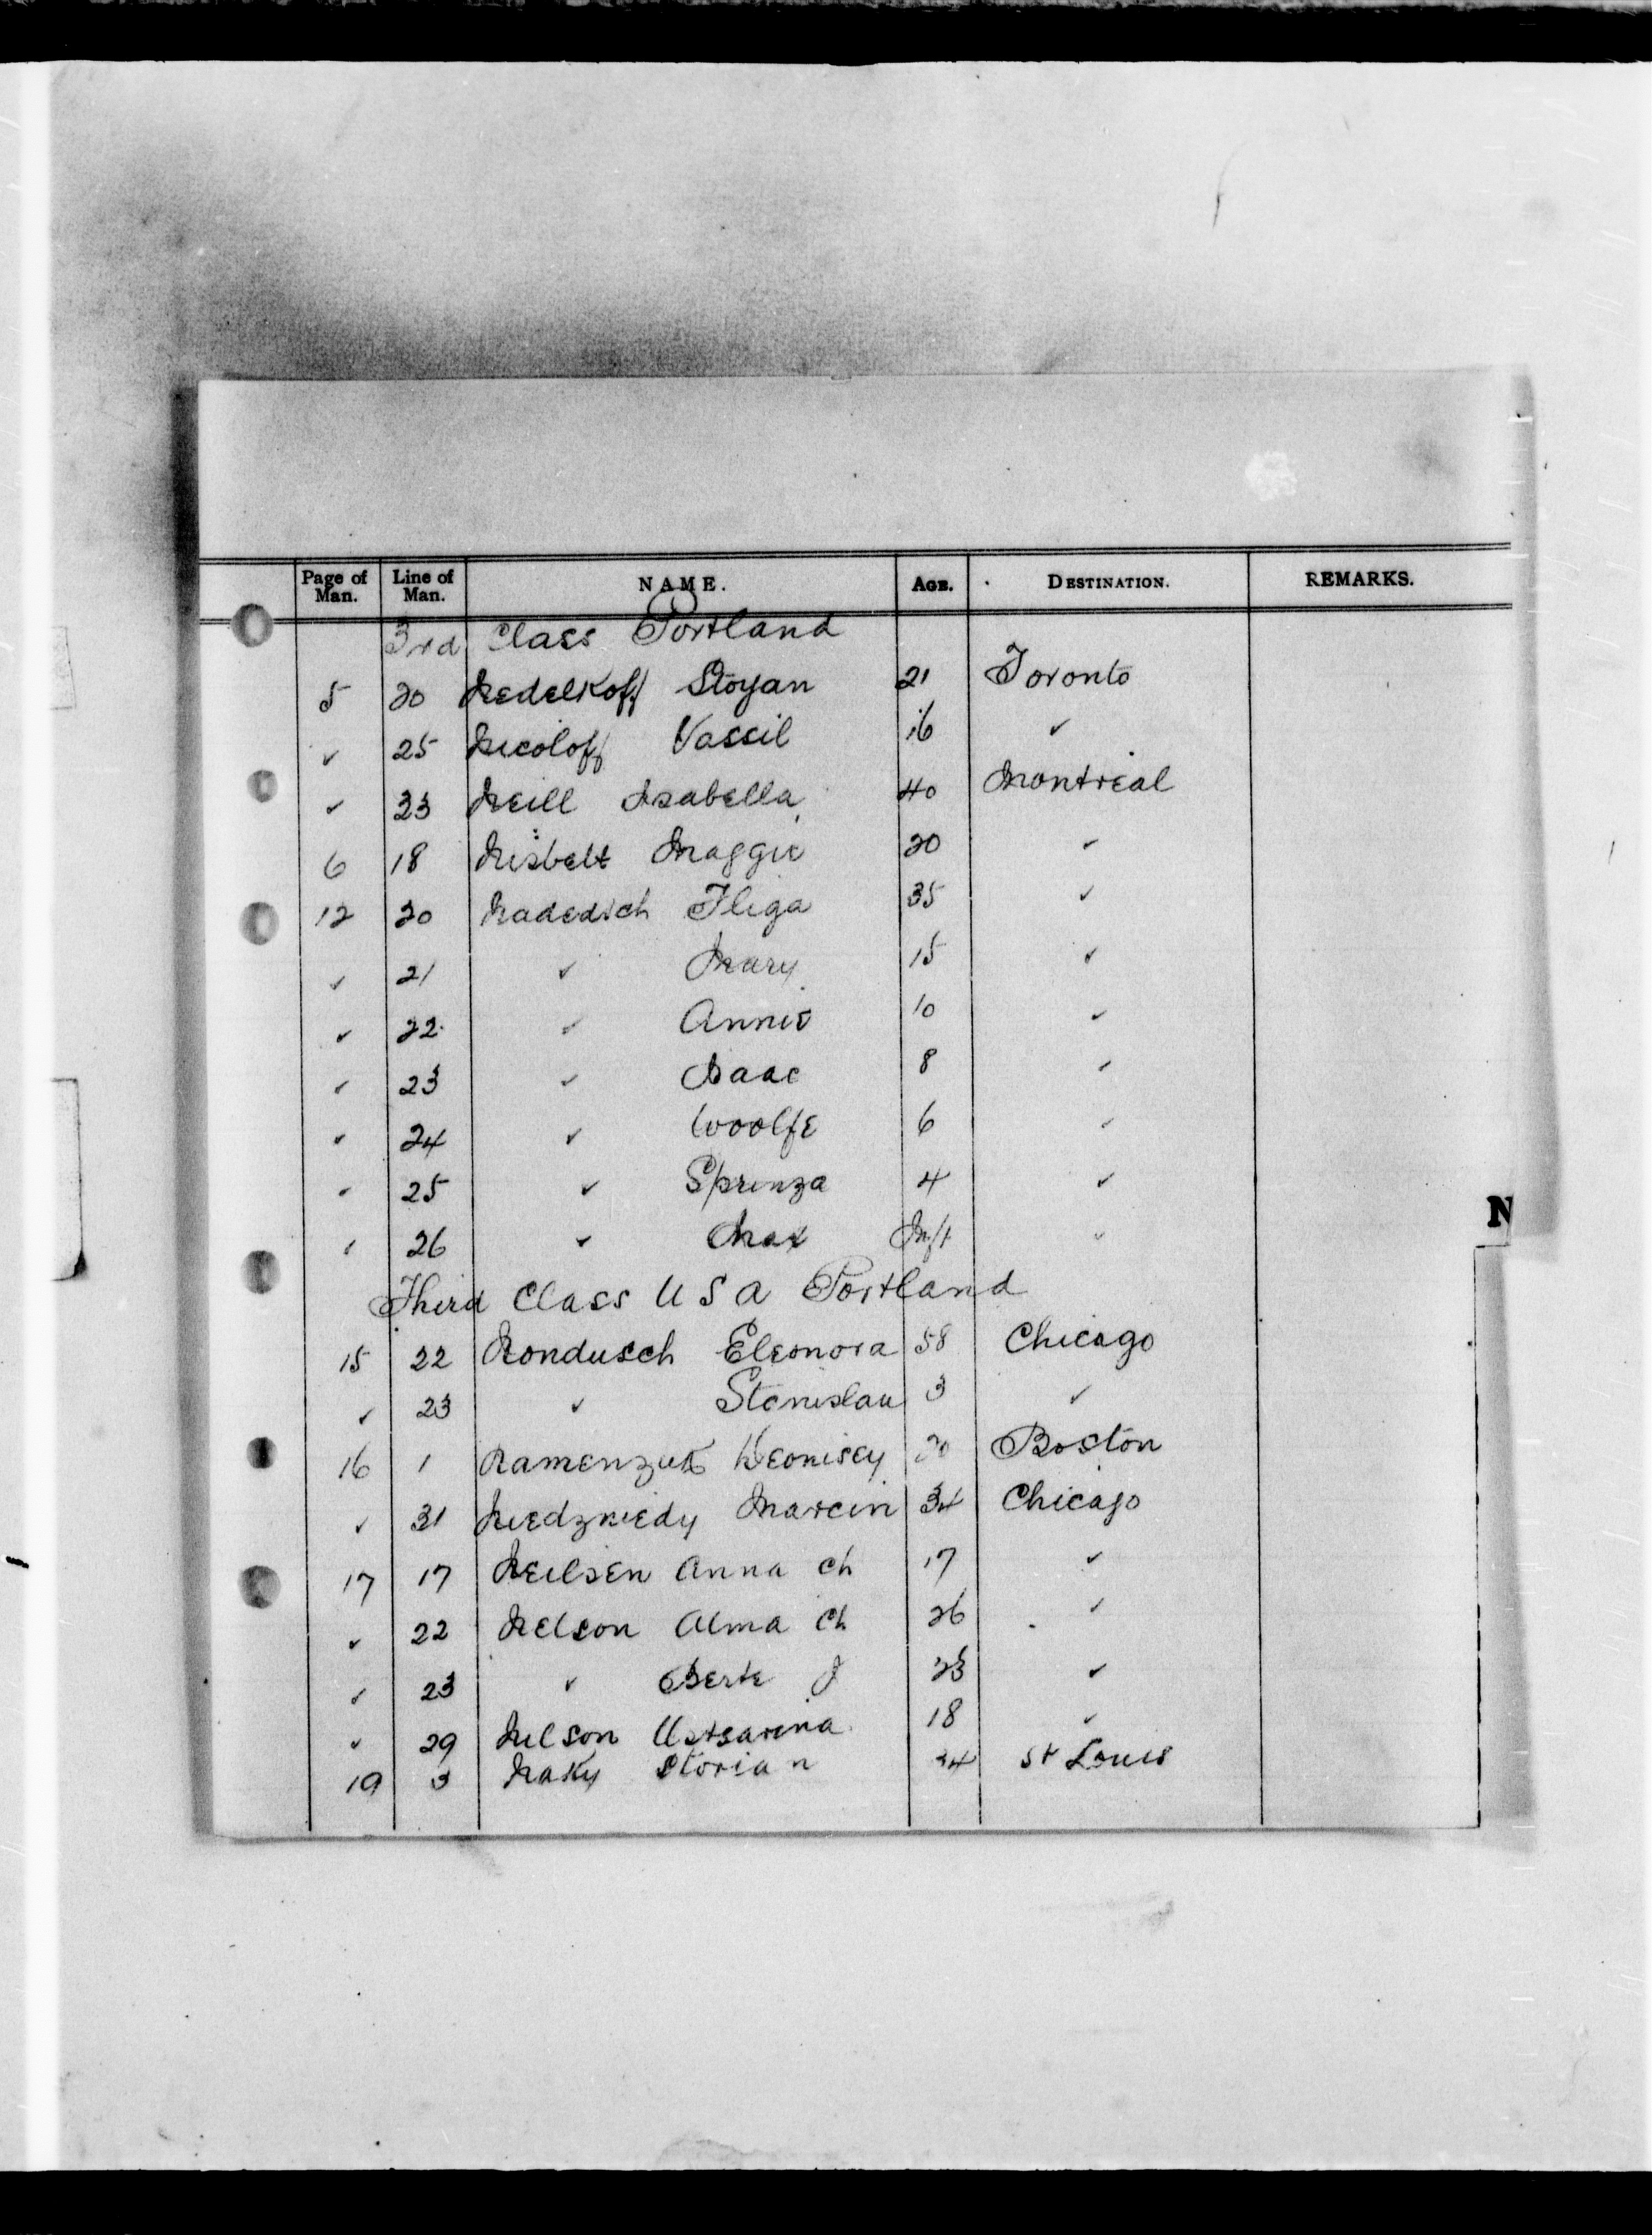 Page of Man. Line of Man. NAME. AGE. DESTINATION. REMARKS.
3rd Class Portland
5 20 Nedelkoff Stoyan 21 Toronto
✓ 25 Nicoloff Vassil 16 ✓
✓ 23 Neill Isabella 40 Montreal
6 18 Nisbett Maggie 20 ✓
12 20 Nadedich Fliga 35 ✓
✓ 21 ✓ Mary 15 ✓
✓ 22 ✓ Annie 10 ✓
✓ 23 ✓ Isaac 8 ✓
✓ 24 ✓ Woolfe 6 ✓
✓ 25 ✓ Sprinza 4 ✓
✓ 26 ✓ Max Inft ✓
N
Third Class U S A Portland
15 22 Nondusch Eleonora 58 Chicago
✓ 23 ✓ Stanislau 3 ✓
16 1 Namenzuk 20 Boston
✓ 31 Niedzniedy Marcin 34 Chicago
17 17 Neilsen Anna Ch 17 ✓
✓ 22 Nelson Alma Ch 26 ✓
✓ 23 ✓ Berte J 23 ✓
✓ 29 Nilson 18 ✓
19 3 Naky Storian 34 St Louis